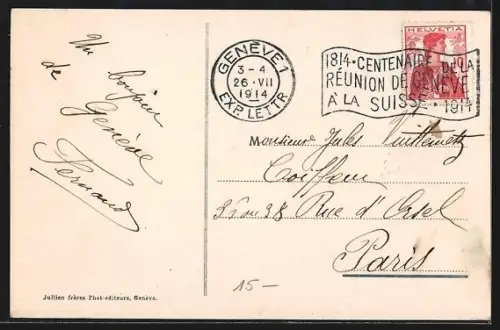 Un bonjour
de Genève
Fernand
GENÈVE 1
3-4
26·VII
1914
EXP. LETTR
1814·CENTENAIRE DE LA
RÉUNION DE GENÈVE
A LA SUISSE·1914
HELVETIA
10
Monsieur Jules
Coiffeur
36 ou 38 Rue d'Orsel
Paris
15-
Jullien frères Phot-éditeurs, Genève.